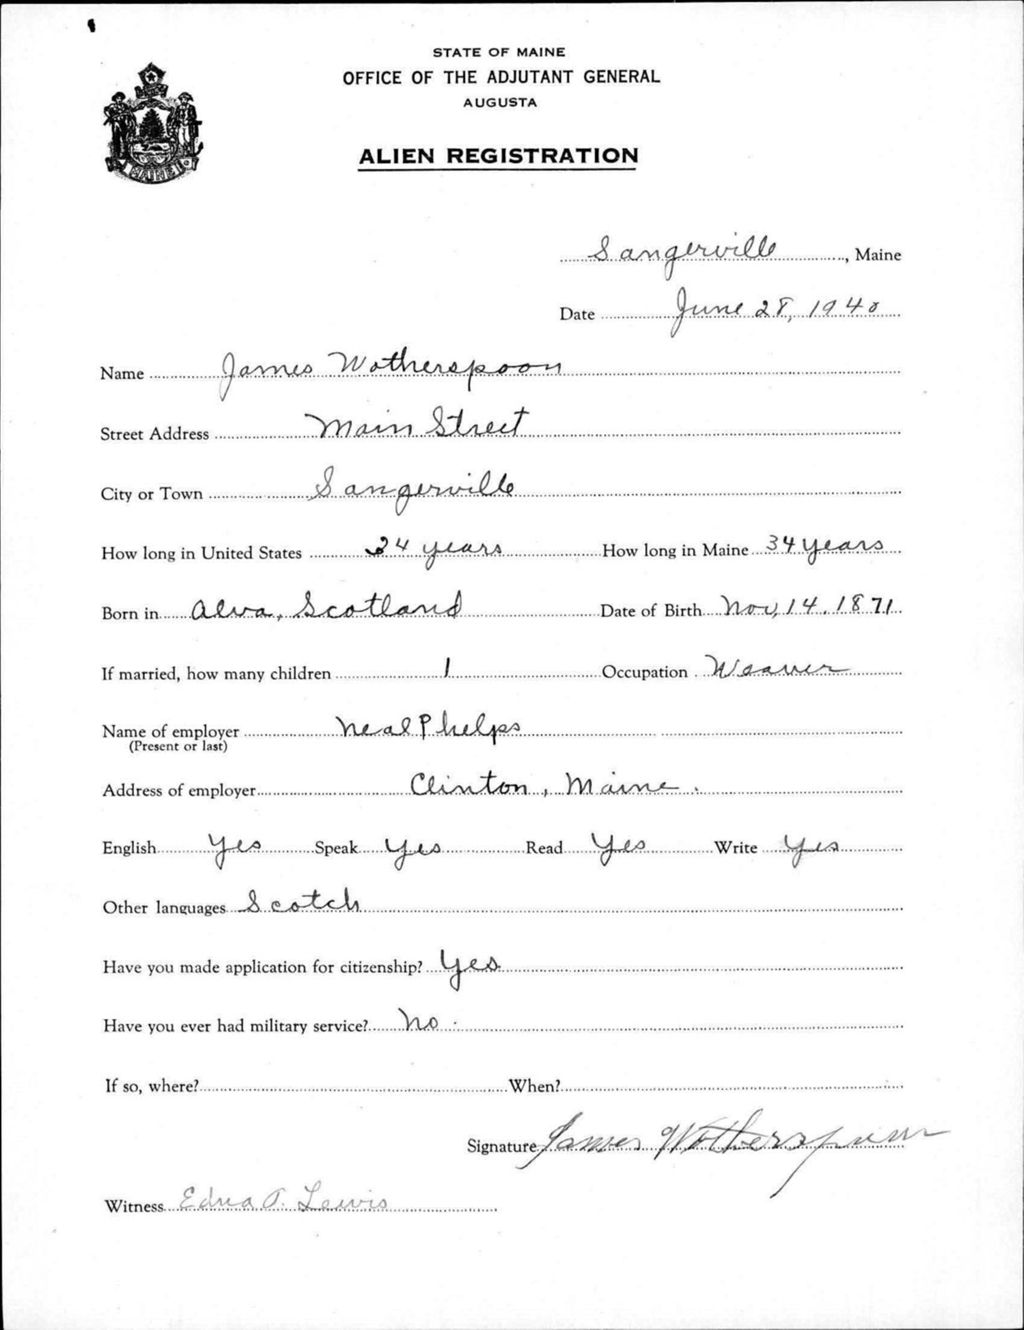 STATE OF MAINE
OFFICE OF THE ADJUTANT GENERAL
AUGUSTA
ALIEN REGISTRATION
MAINE
Sangerville, Maine
Date June 28, 1940
Name James Wotherspoon
Street Address Main Street
City or Town Sangerville
How long in United States 34 years How long in Maine 34 years
Born in Alva, Scotland Date of Birth Nov, 14, 1871
If married, how many children 1 Occupation Weaver
Name of employer Neal Phelps
(Present or last)
Address of employer Clinton, Maine.
English Yes Speak Yes Read Yes Write Yes
Other languages Scotch
Have you made application for citizenship? Yes
Have you ever had military service? No.
If so, where? When?
Signature James Wotherspoon
Witness Edna P. Lewis